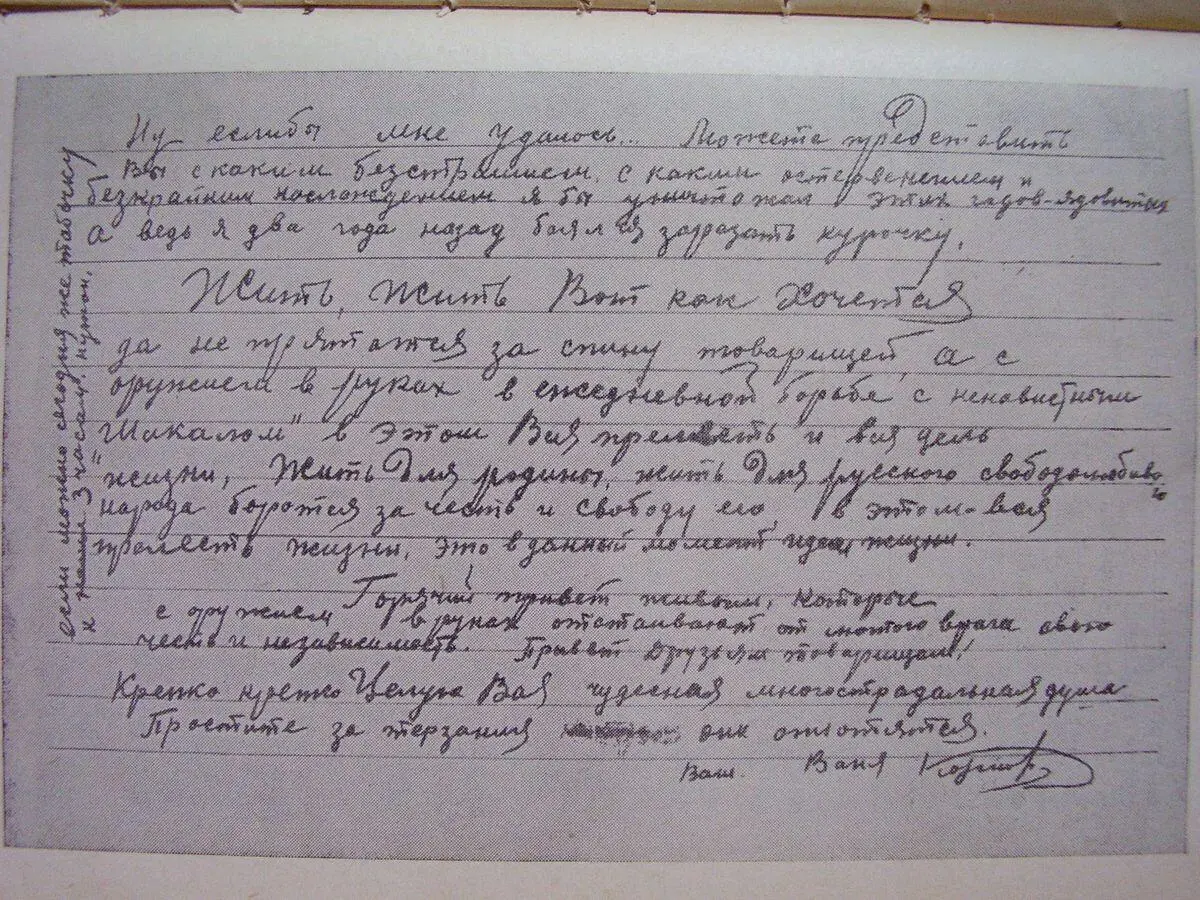 Ну еслибы мне удалось... Можете представить
Вы с каким безстрашием, с каким остервенением и
безкрайним наслождением я бы уничтожал этих гадов-ядовитых
а ведь я два года назад боялся зарезать курочку.
Жить, жить Вот как хочется
да не прятатся за спину товарищей, а с
оружием в руках в ежедневной борьбе с ненавистным
"Шакалом" в этом Вся прелесть и вся цель
жизни, Жить Для родины, жить Для русского свободолюбиваго
народа боротся за честь и свободу его, в этом-вся
прелесть жизни, это в данный момент идея жизни.
Горячий привет живым, которые
с оружием в руках отстаивают от лютого врага свою
честь и независимость. Привет Друзьям товарищам!
Крепко крепко Целую Вас чудесная многострадальная душа
Простите за терзания они окупятся.
Ваш. Ваня
если можно сегодня же табачку
к 3 часам. нужен.